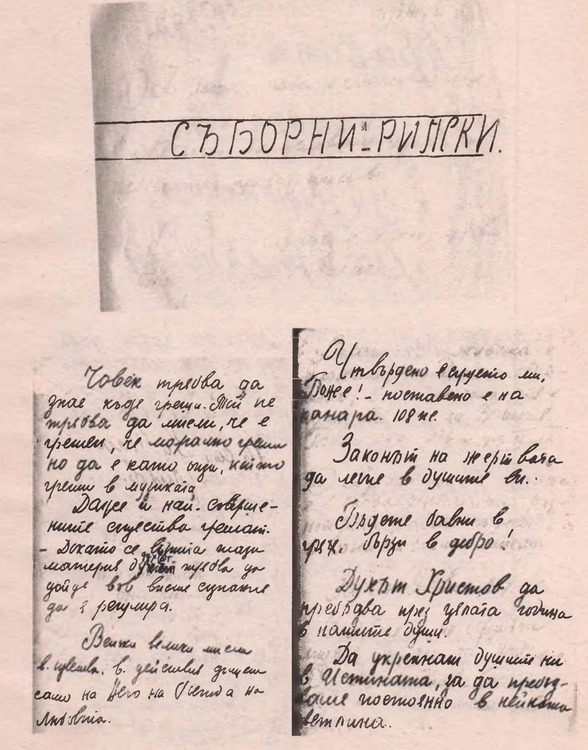 СЪБОРНИ - РИЛСКИ.
Човек трябва да
знае къде греши. Той не
трябва да мисли, че е
грешен, че морално греши
но да е като онзи, който
греши в музиката
Даже и най-съвърше-
ните същества грешат.
- Докато се тази
материя трябва да
дойде във висше съзнание
да я регулира.
Всички велики мисли
в. в. действия
само на Него на Бога на
Любовта.
Утвърдено е сърцето ми,
Боже! - поставено е на
канара. 108 пс.
Законът на жертвата
да легне в душите ви.
Бъдете бавни в
грях, бързи в добро!
Духът Христов да
пребъдва през цялата година
в нашите души.
Да укрепнат душите ни
в Истината, за да пребъд-
ваме постоянно в нейната
светлина.